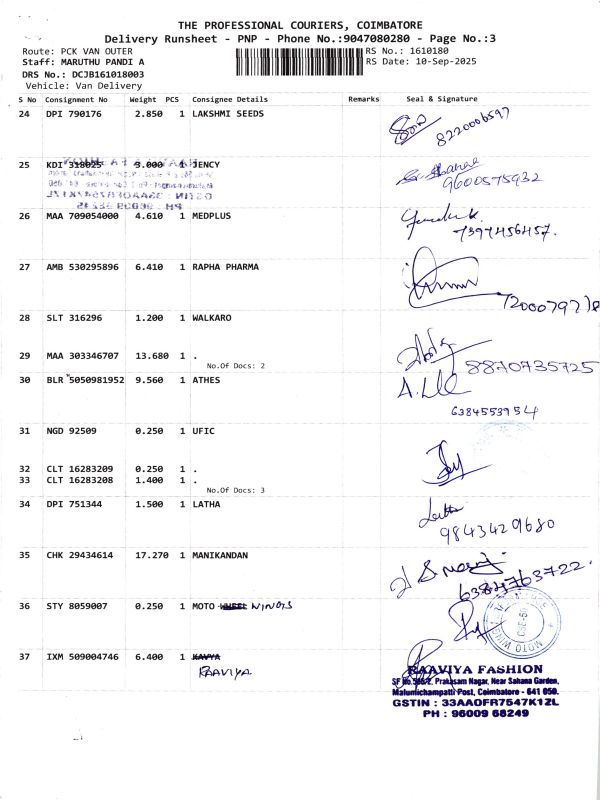 THE PROFESSIONAL COURIERS, COIMBATORE
Delivery Runsheet - PNP - Phone No.:9047080280 - Page No.:3
Route: PCK VAN OUTER RS No.: 1610180
Staff: MARUTHU PANDI A RS Date: 10-Sep-2025
DRS No.: DCJB161018003
Vehicle: Van Delivery
S No Consignment No Weight PCS Consignee Details Remarks Seal & Signature
24 DPI 790176 2.850 1 LAKSHMI SEEDS
8220006597
25 KDI 318025 3.000 1 JENCY
9600575932
26 MAA 709054000 4.610 1 MEDPLUS
7397456457.
27 AMB 530295896 6.410 1 RAPHA PHARMA
28 SLT 316296 1.200 1 WALKARO
29 MAA 303346707 13.680 1 .
No.Of Docs: 2
8870735725
30 BLR 5050981952 9.560 1 ATHES
6384553954
31 NGD 92509 0.250 1 UFIC
32 CLT 16283209 0.250 1 .
33 CLT 16283208 1.400 1 .
No.Of Docs: 3
34 DPI 751344 1.500 1 LATHA
Latha
9843429680
35 CHK 29434614 17.270 1 MANIKANDAN
6384763722.
36 STY 8059007 0.250 1 MOTO WHEEL NINOTS
37 IXM 509004746 6.400 1 KAVYA
RAAVIYA
RAAVIYA FASHION
SF No.565/2, Prakasam Nagar, Near Sahana Garden,
Malumichampatti Post, Coimbatore - 641 050.
GSTIN : 33AAOFR7547K1ZL
PH : 96009 68249